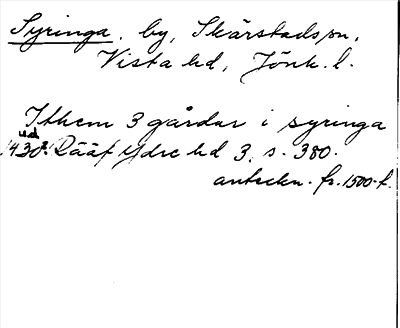 Syringa, by, Skärstads sn,
Vista hd, Jönk. l.
Ithem 3 gårdar i syringa
u.d.
1430? Rääf Ydre hd 3, s. 380.
anteckn. fr. 1500-t.